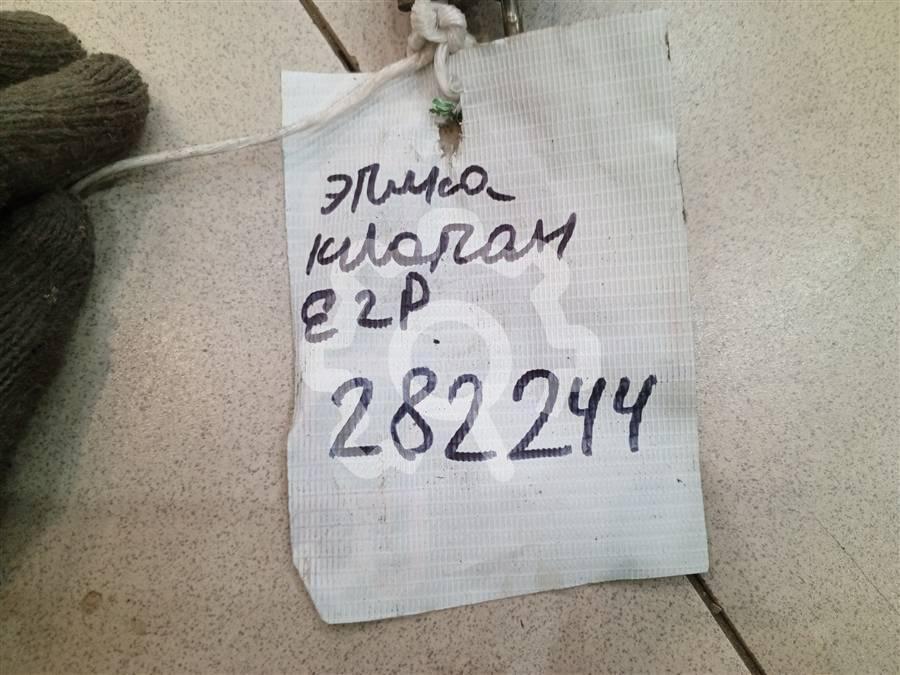 эпика
клапан
EGR
282244